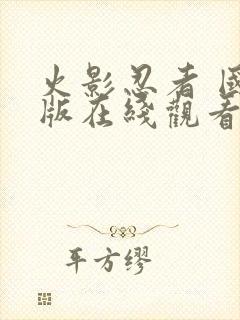 火影忍者 國
版在綫觀看
平方缪